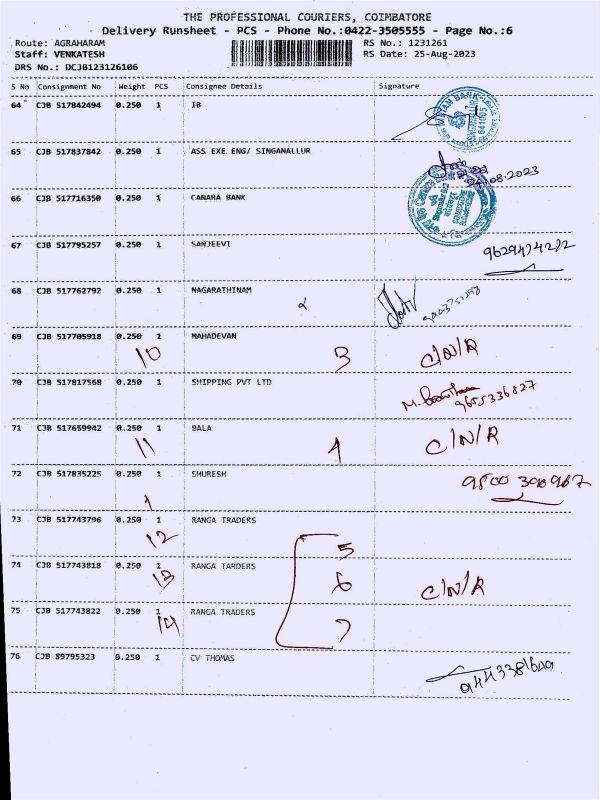 THE PROFESSIONAL COURIERS, COIMBATORE
Delivery Runsheet - PCS - Phone No.:0422-3505555 - Page No.:6
Route: AGRAHARAM RS No.: 1231261
Staff: VENKATESH RS Date: 25-Aug-2023
DRS No.: DCJB123126106
S No Consignment No Weight PCS Consignee Details Signature
64 CJB 517842494 0.250 1 IB
65 CJB 517837842 0.250 1 ASS EXE ENG/ SINGANALLUR
66 CJB 517716350 0.250 1 CANARA BANK
67 CJB 517795257 0.250 1 SANJEEVI
68 CJB 517762792 0.250 1 NAGARATHINAM
69 CJB 517705918 0.250 1 MAHADEVAN C/N/R
10 3
70 CJB 517817568 0.250 1 SHIPPING PVT LTD 9655336827
71 CJB 517659942 0.250 1 BALA C/N/R
11 4
72 CJB 517835225 0.250 1 SMURESH 9500 300 967
73 CJB 517743796 0.250 1 RANGA TRADERS
12 5
74 CJB 517743818 0.250 1 RANGA TARDERS
13 6 C/N/R
75 CJB 517743822 0.250 1 RANGA TRADERS
14 7
76 CJB 89795323 0.250 1 CV THOMAS